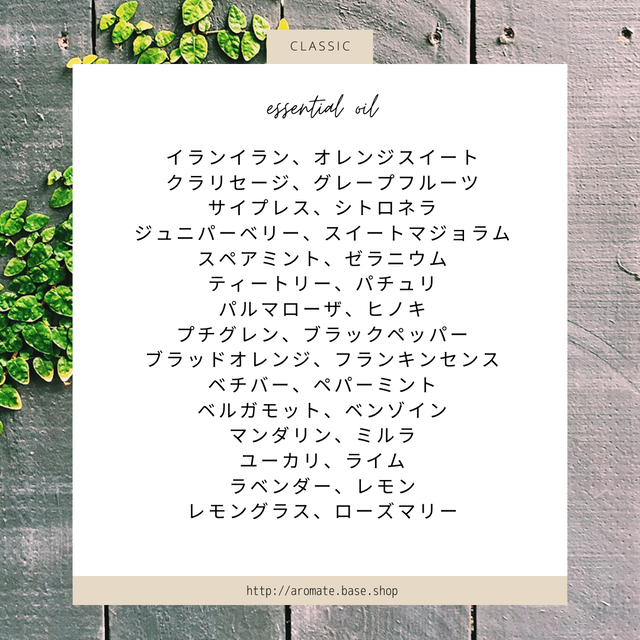 CLASSIC
essential oil
イランイラン、オレンジスイート
クラリセージ、グレープフルーツ
サイプレス、シトロネラ
ジュニパーベリー、スイートマジョラム
スペアミント、ゼラニウム
ティートリー、パチュリ
パルマローザ、ヒノキ
プチグレン、ブラックペッパー
ブラッドオレンジ、フランキンセンス
ベチバー、ペパーミント
ベルガモット、ベンゾイン
マンダリン、ミルラ
ユーカリ、ライム
ラベンダー、レモン
レモングラス、ローズマリー
http://aromate.base.shop